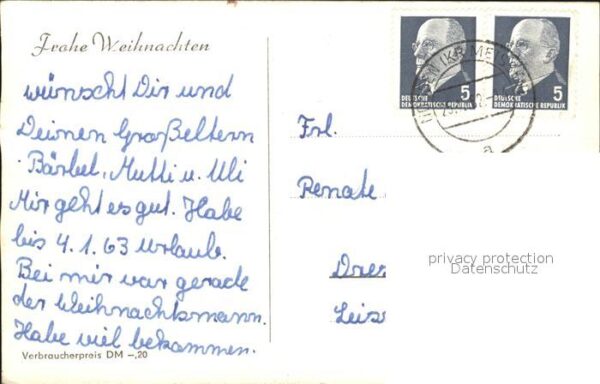 Frohe Weihnachten
wünscht Dir und
Deinen Großeltern
Bärbel, Mutti u. Uli
Mir geht es gut. Habe
bis 4.1.63 Urlaub.
Bei mir war gerade
der Weihnachtsmann.
Habe viel bekommen.
Verbraucherpreis DM -,20
5
DEUTSCHE
DEMOKRATISCHE REPUBLIK
5
DEUTSCHE
DEMOKRATISCHE REPUBLIK
a
Frl.
Renate
privacy protection
Datenschutz